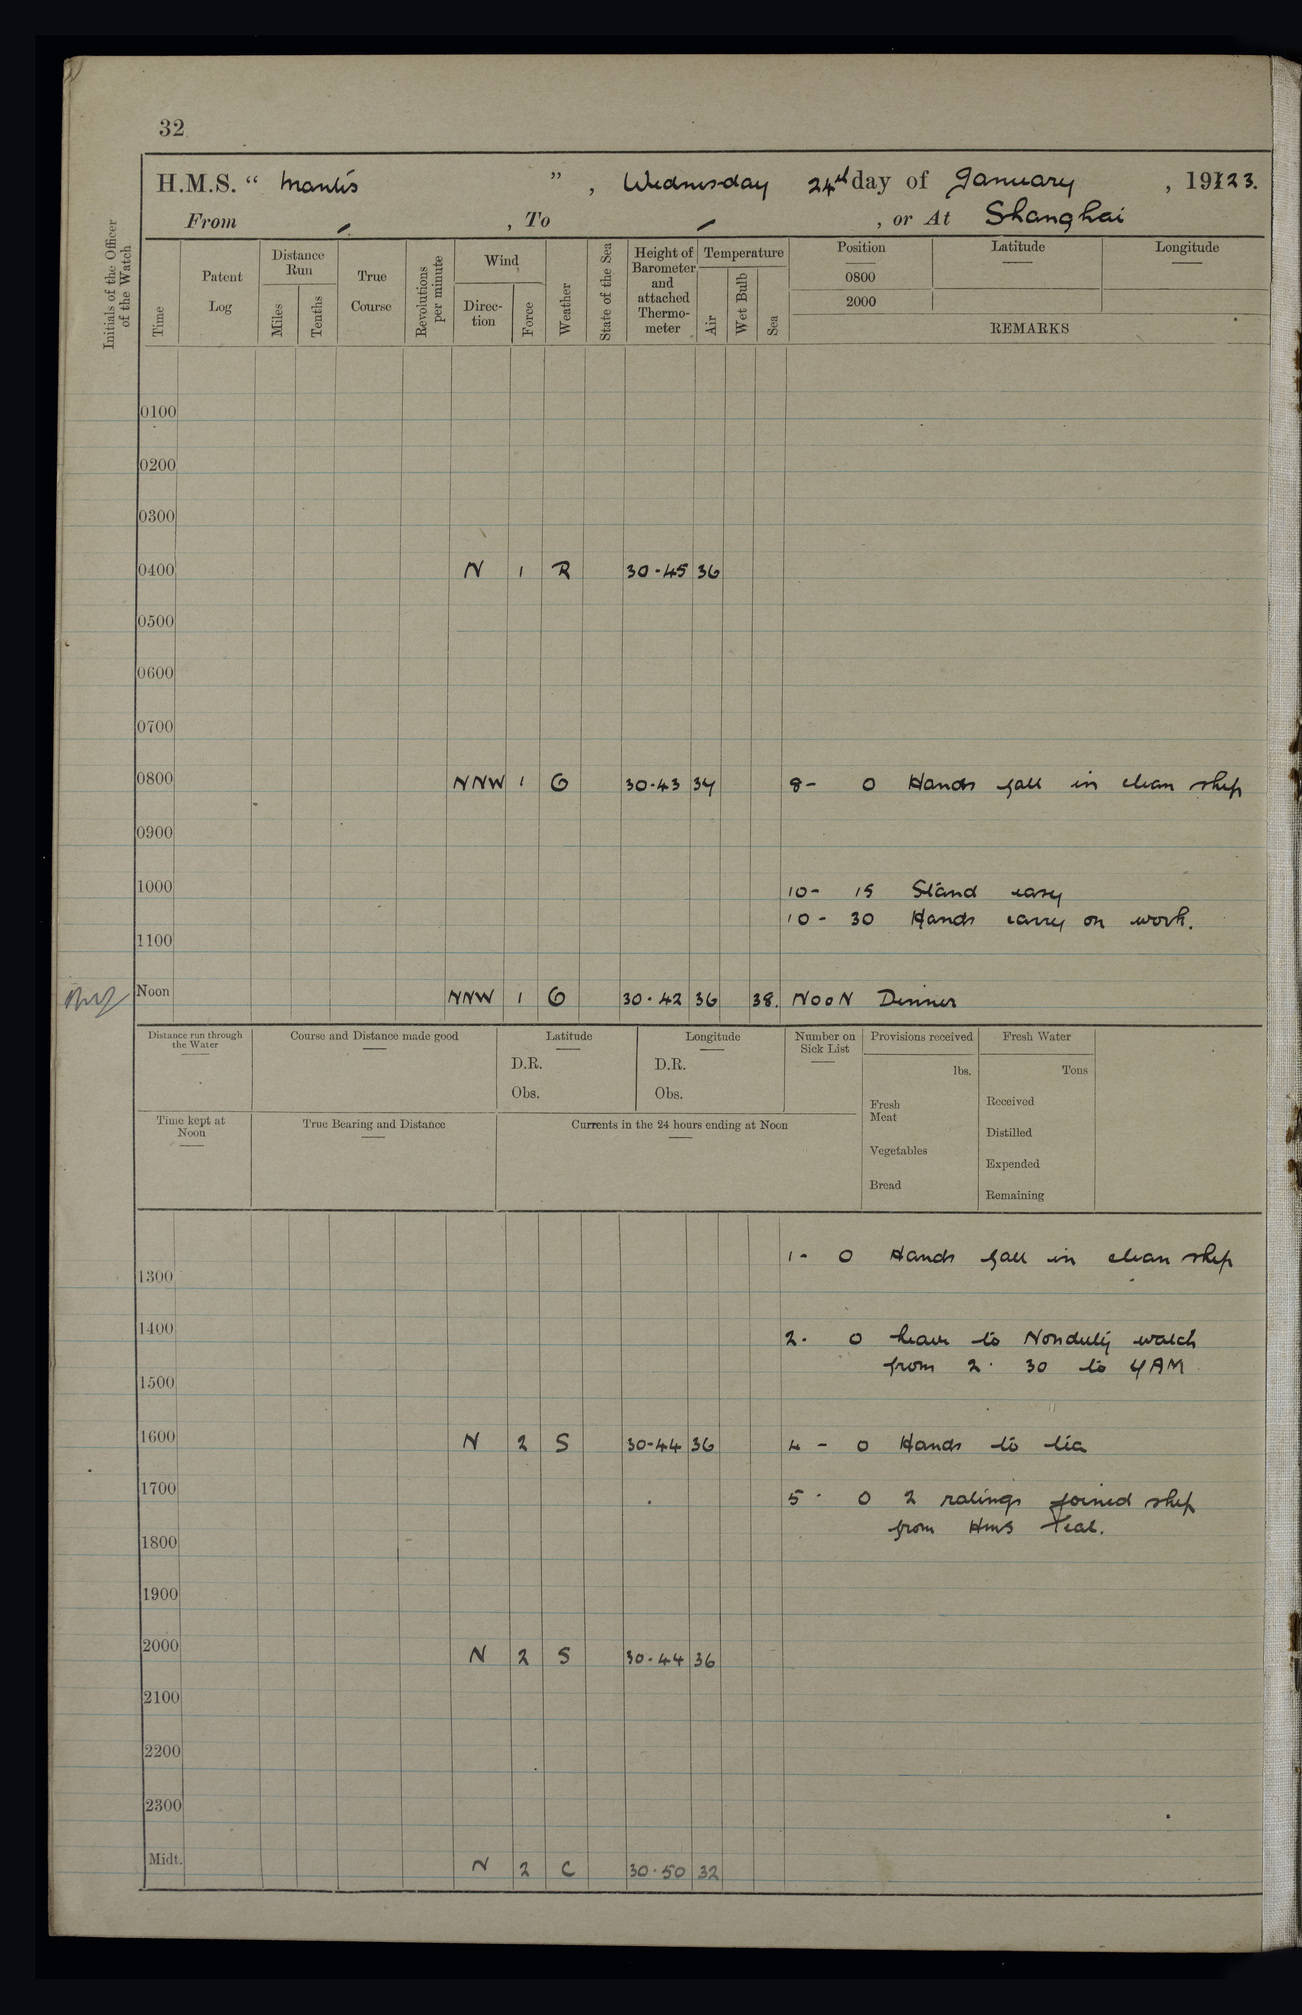 32
H.M.S. “ Mantis ” , Wednesday 24th day of January , 19123.
From , To , or At Shanghai
Initials of the Officer of the Watch
Time
Patent Log
Distance Run
Miles
Tenths
True Course
Revolutions per minute
Wind
Direc-tion
Force
Weather
State of the Sea
Height of Barometer and attached Thermo-meter
Temperature
Air
Wet Bulb
Sea
Position
Latitude
Longitude
0800
2000
REMARKS
0100
0200
0300
0400 N 1 R 30·45 36
0500
0600
0700
0800 NNW 1 O 30·43 34 8- 0 Hands fall in clean ship
0900
1000 10- 15 Stand easy
10- 30 Hands carry on work.
1100
Noon NNW 1 O 30·42 36 38. NOON Dinner
Distance run through the Water
Course and Distance made good
Latitude
D.R.
Obs.
Longitude
D.R.
Obs.
Number on Sick List
Provisions received
lbs.
Fresh Meat
Vegetables
Bread
Fresh Water
Tons
Received
Distilled
Expended
Remaining
Time kept at Noon
True Bearing and Distance
Currents in the 24 hours ending at Noon
1- 0 Hands fall in clean ship
1300
1400 2· 0 Leave to Nonduty watch
from 2· 30 to 4AM
1500
1600 N 2 S 30-44 36 4 - 0 Hands to tea
1700 5· 0 2 ratings joined ship
from HMS Teal.
1800
1900
2000 N 2 S 30·44 36
2100
2200
2300
Midt. N 2 C 30·50 32